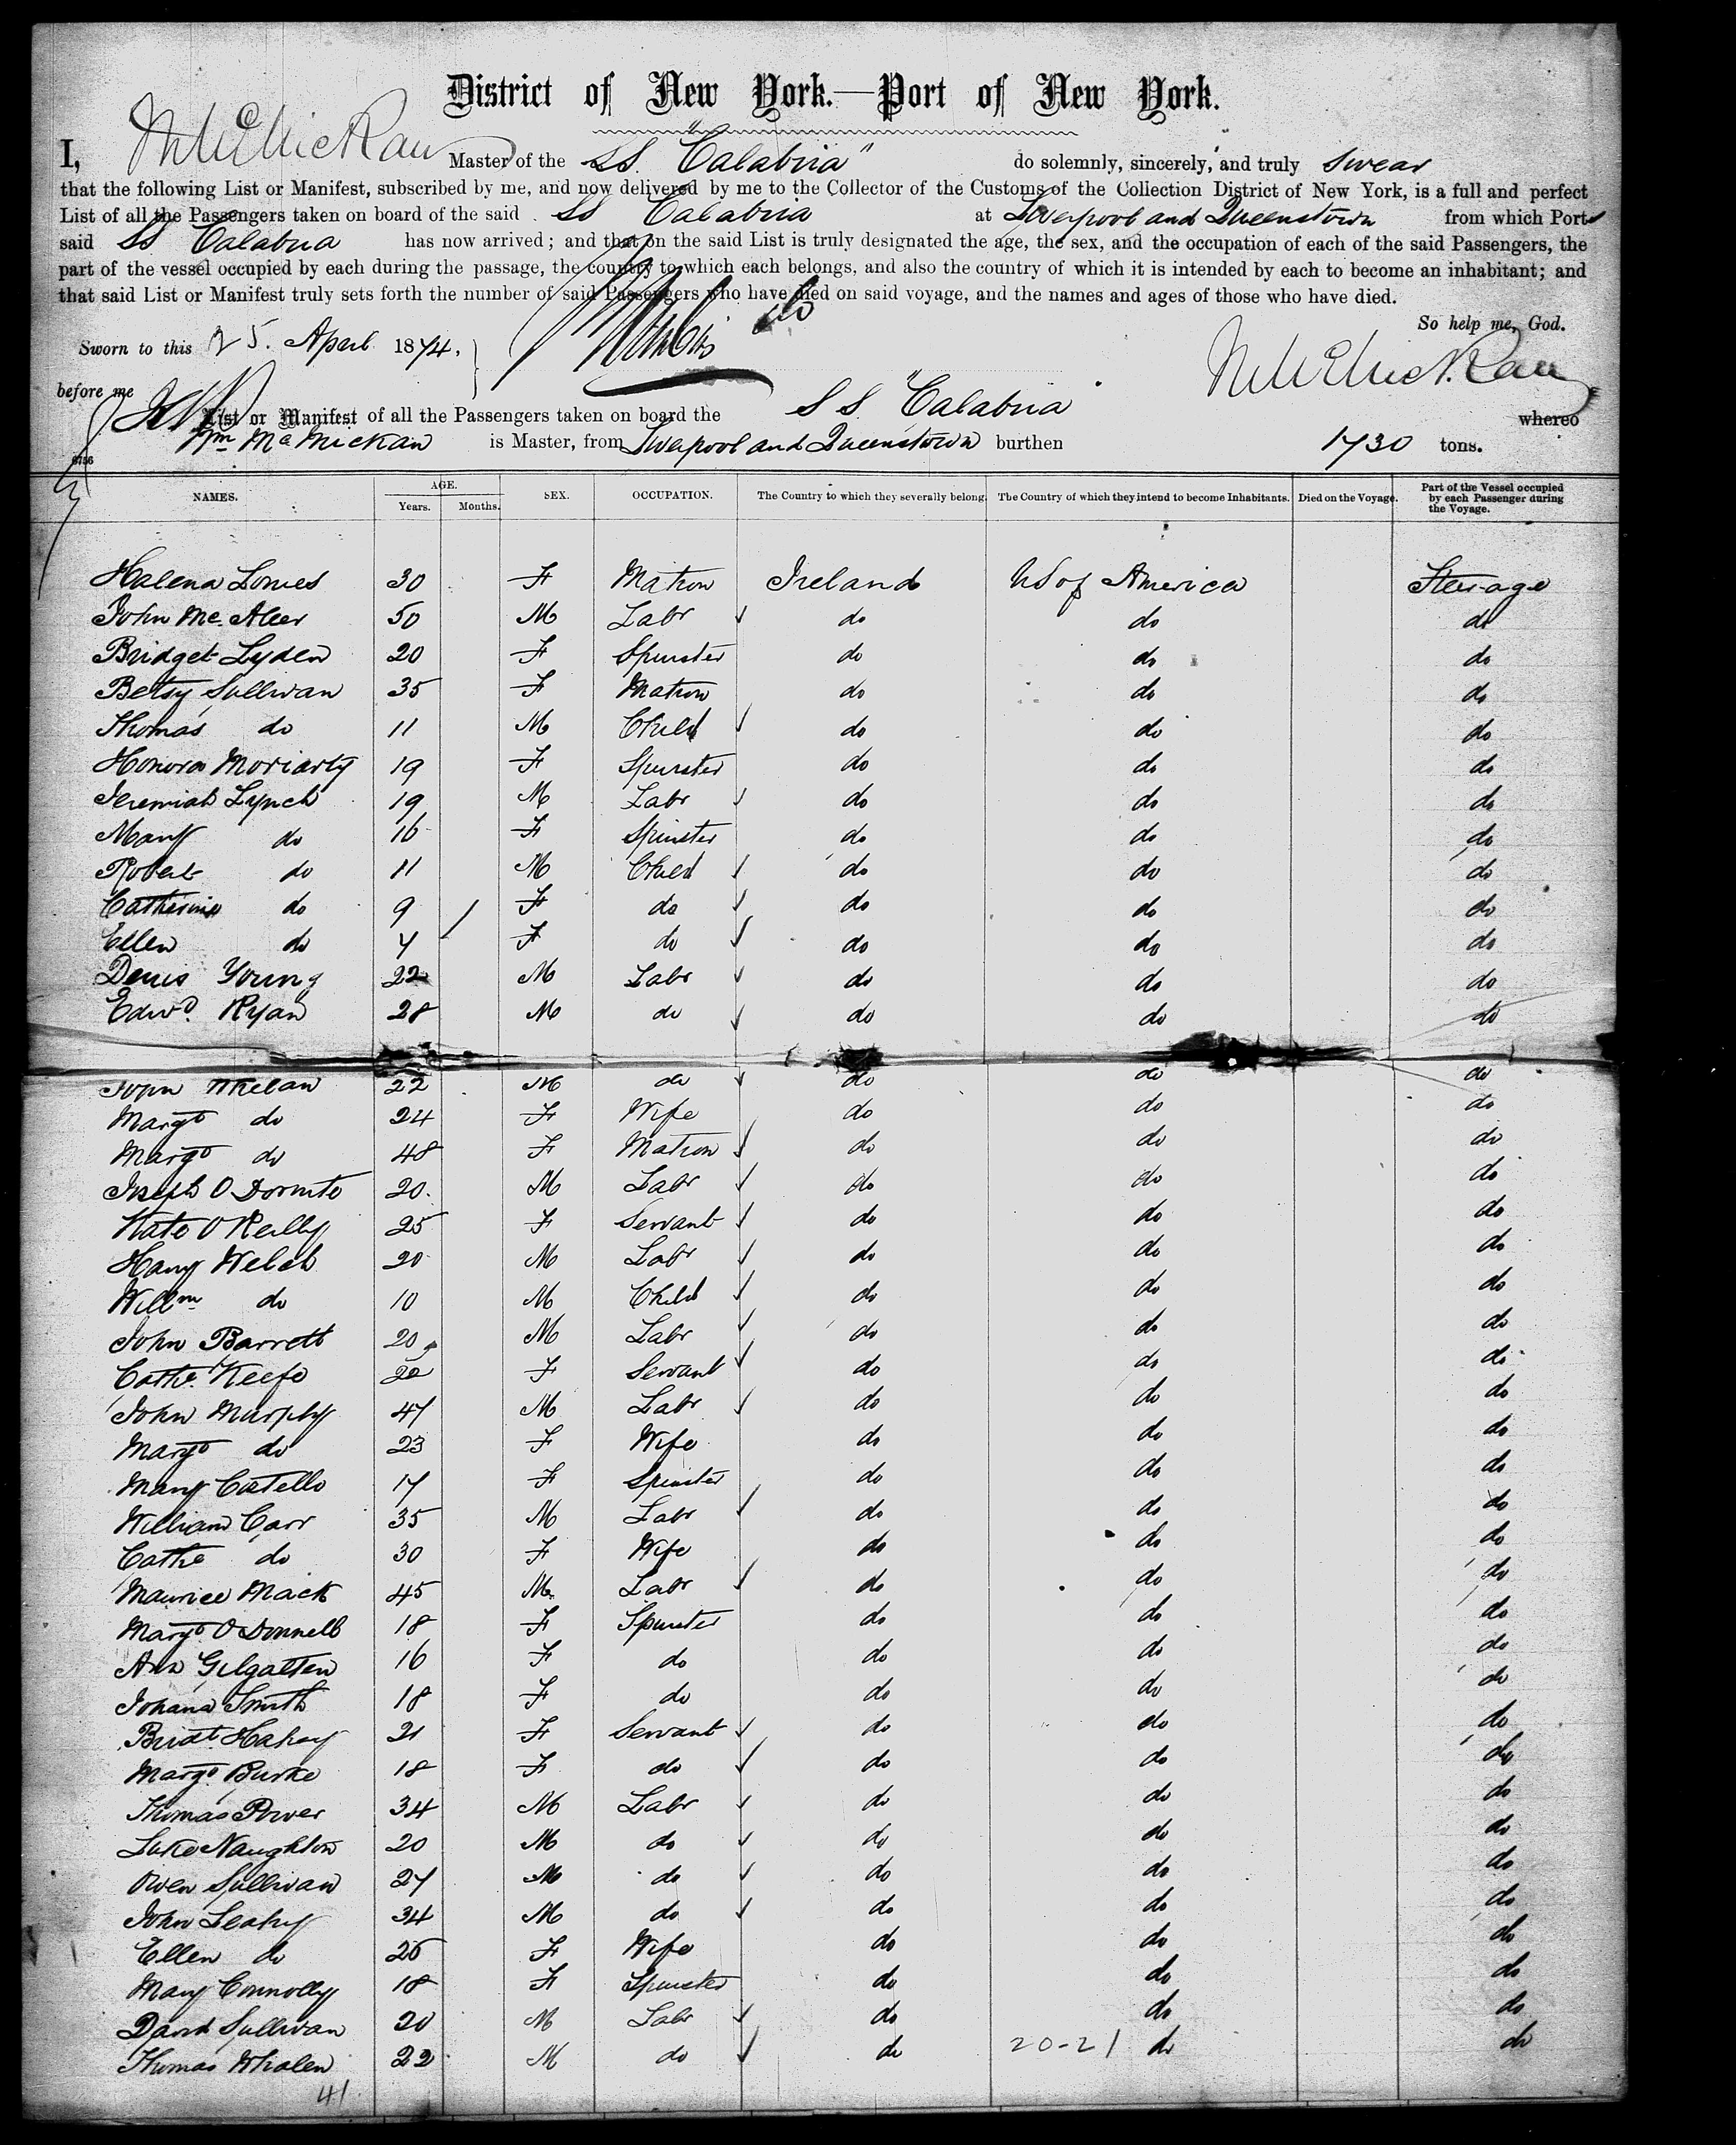 District of New York.—Port of New York.
I, Master of the SS. "Calabria" do solemnly, sincerely, and truly swear
that the following List or Manifest, subscribed by me, and now delivered by me to the Collector of the Customs of the Collection District of New York, is a full and perfect
List of all the Passengers taken on board of the said SS Calabria at Liverpool and Queenstown from which Ports
said SS Calabria has now arrived; and that on the said List is truly designated the age, the sex, and the occupation of each of the said Passengers, the
part of the vessel occupied by each during the passage, the country to which each belongs, and also the country of which it is intended by each to become an inhabitant; and
that said List or Manifest truly sets forth the number of said Passengers who have died on said voyage, and the names and ages of those who have died.
So help me, God.
Sworn to this 25. April 1874.
before me
List or Manifest of all the Passengers taken on board the SS "Calabria whereo
Wm McMickan is Master, from Liverpool and Queenstown burthen 1730 tons.
NAMES. AGE. Years. Months. SEX. OCCUPATION. The Country to which they severally belong. The Country of which they intend to become Inhabitants. Died on the Voyage. Part of the Vessel occupied by each Passenger during the Voyage.
Halena Lowes 30 F Matron Ireland US of America Steerage
John McAleer 50 M Labr do do do
Bridget Lyden 20 F Spinster do do do
Betsy Sullivan 35 F Matron do do do
Thomas do 11 M Child do do do
Honora Moriarty 19 F Spinster do do do
Jeremiah Lynch 19 M Labr do do do
Mary do 16 F Spinster do do do
Robert do 11 M Child do do do
Catherine do 9 F do do do do
Ellen do 7 F do do do do
Denis Young 22 M Labr do do do
Edwd. Ryan 28 M do do do do
John Whelan 22 M do do do do
Margt do 24 F Wife do do do
Margt do 48 F Matron do do do
Joseph 20 M Labr do do do
Kate O'Reilly 25 F Servant do do do
Harry Welch 20 M Labr do do do
Willm do 10 M Child do do do
John Barrett 20 M Labr do do do
Cathe. Keefe 22 F Servant do do do
John Murphy 47 M Labr do do do
Margt do 23 F Wife do do do
Mary Costello 17 F Spinster do do do
William Carr 35 M Labr do do do
Cathe do 30 F Wife do do do
Maurice Mack 45 M Labr do do do
Margt O'Donnell 18 F Spinster do do do
Ann Gilgallen 16 F do do do do
Johana Smith 18 F do do do do
Bridt. Hahey 21 F Servant do do do
Margt. Burke 18 F do do do do
Thomas Power 34 M Labr do do do
Luke Naughton 20 M do do do do
Owen Sullivan 27 M do do do do
John Leahy 34 M do do do do
Ellen do 26 F Wife do do do
Mary Connolly 18 F Spinster do do do
David Sullivan 20 M Labr do do do
Thomas Whalen 22 M do do 20-21 do do
41